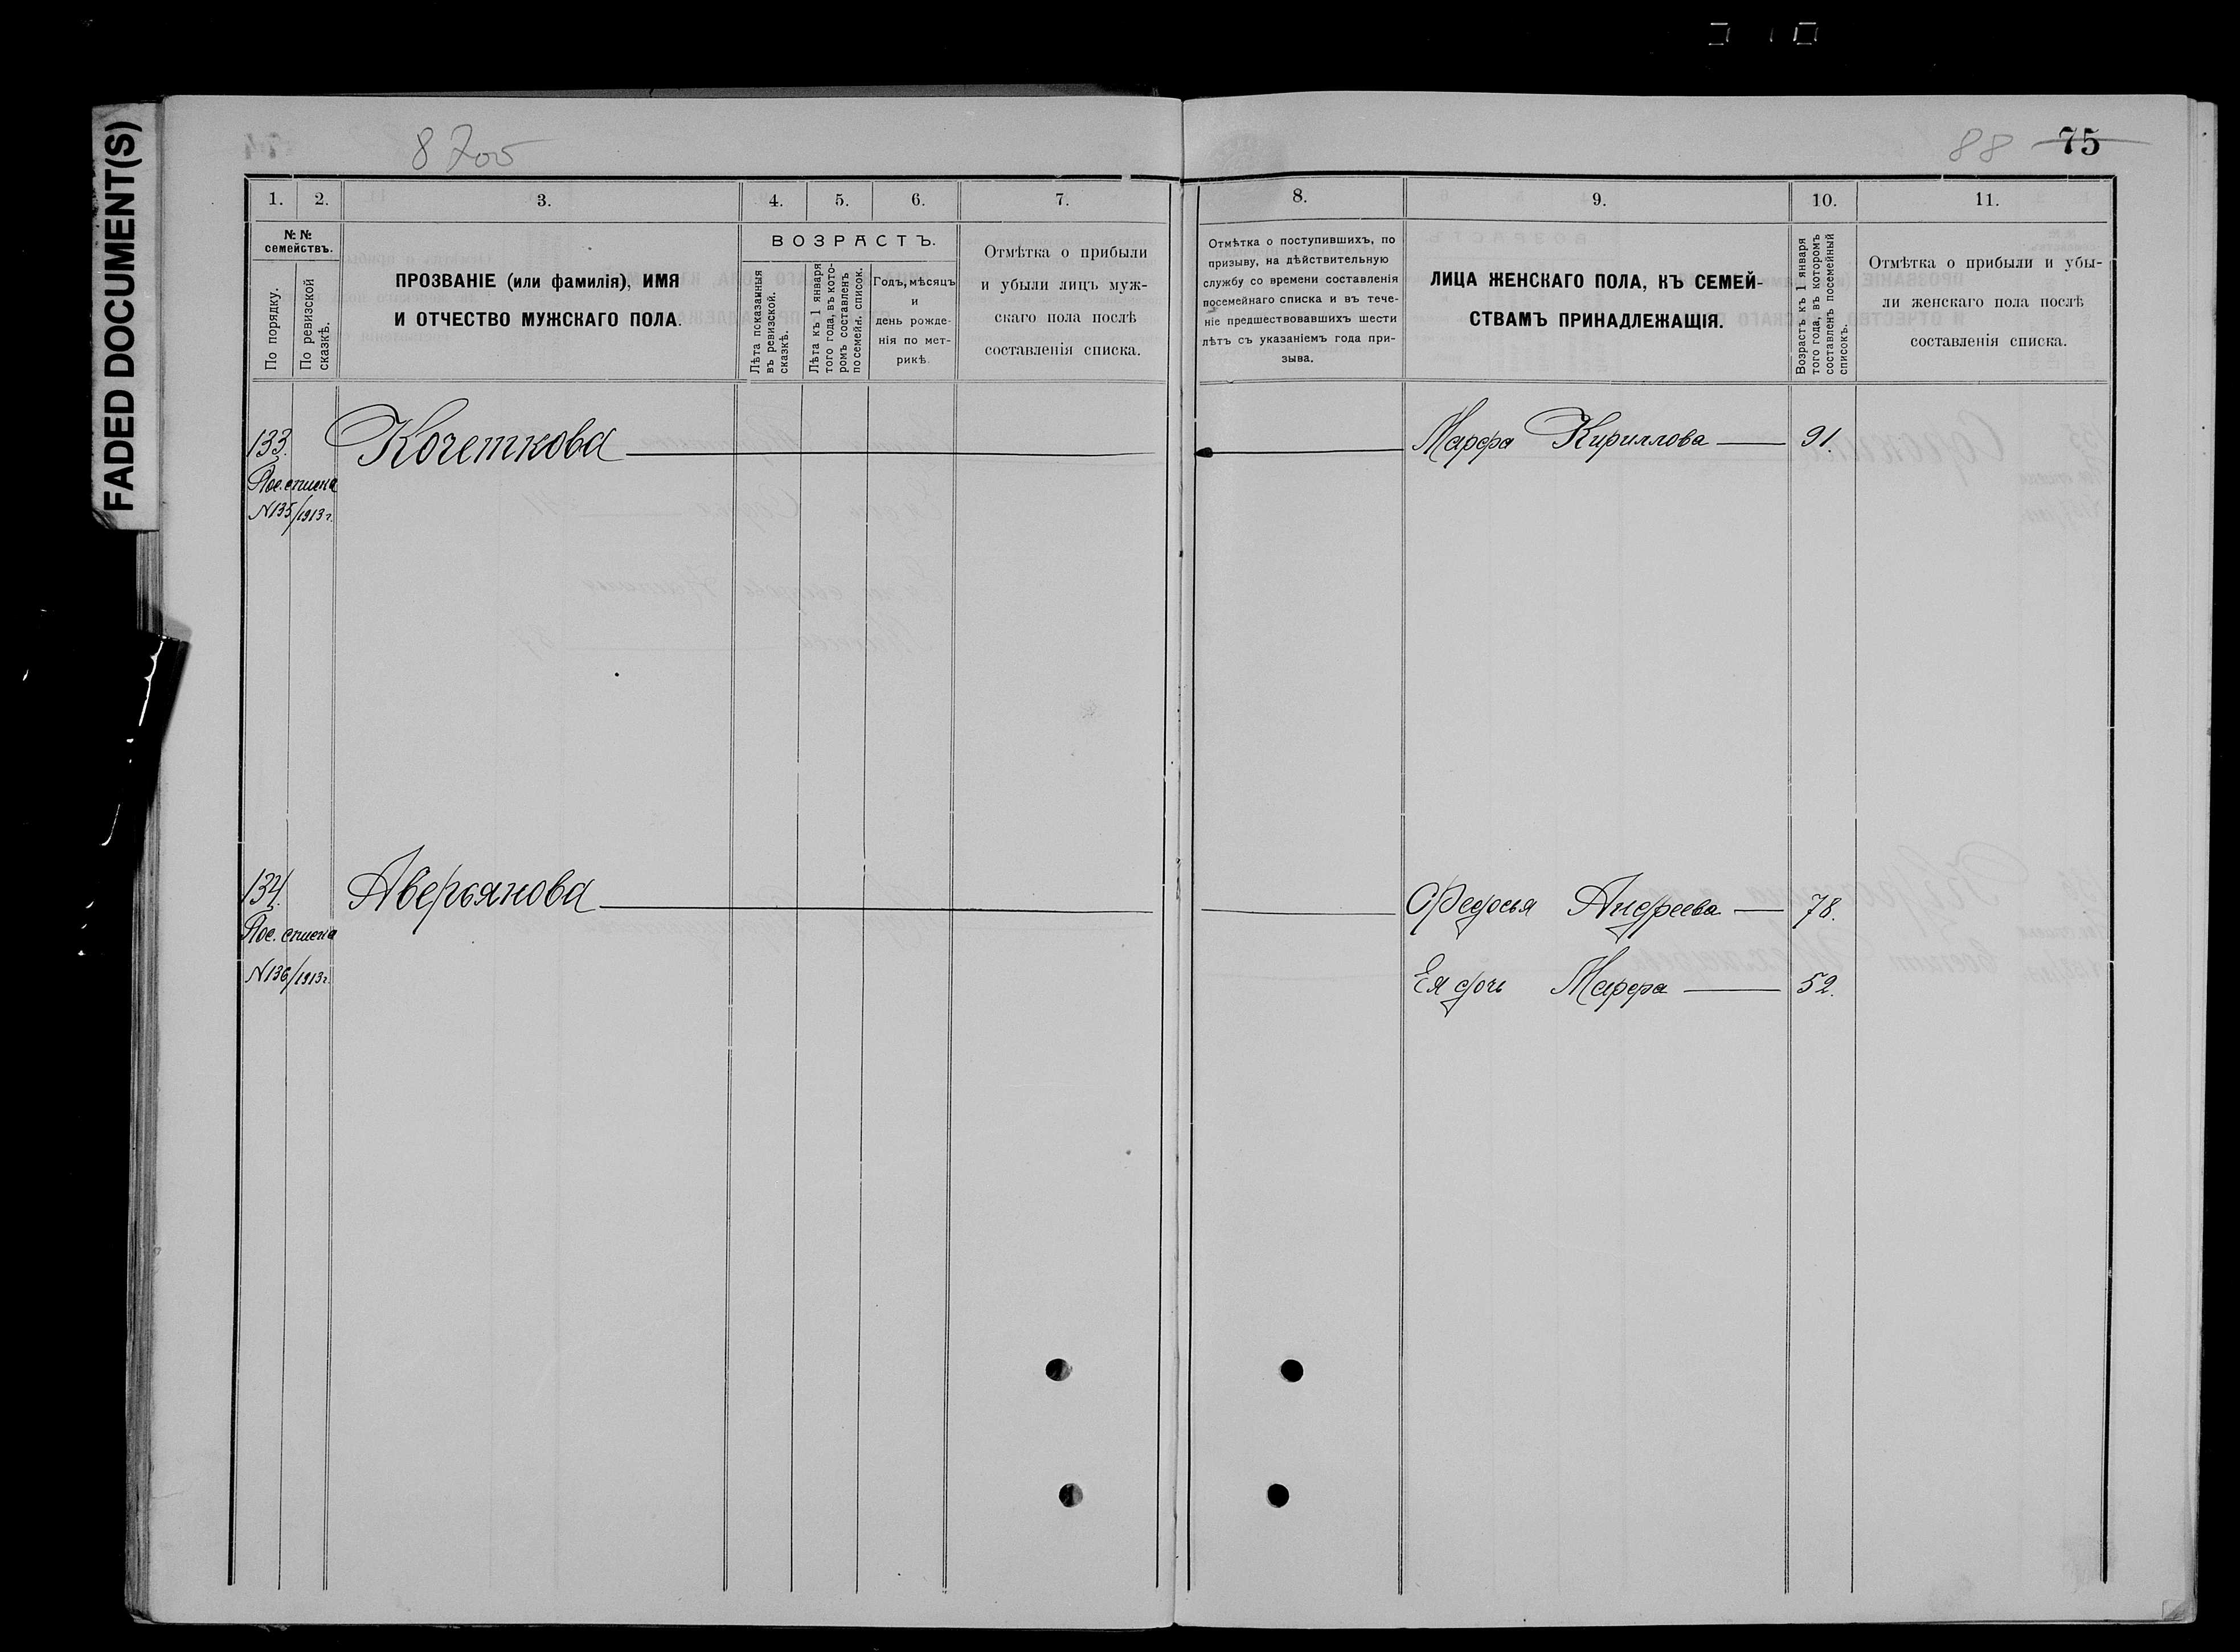 FADED DOCUMENT(S)
87об
88 75
1. 2. 3. 4. 5. 6. 7.
№ №
семействъ.
По порядку.
По ревизской
сказкѣ.
ПРОЗВАНІЕ (или фамилія), ИМЯ
И ОТЧЕСТВО МУЖСКАГО ПОЛА.
ВОЗРАСТЪ.
Лѣта показанныя
въ ревизской.
сказкѣ.
Лѣта къ 1 января
того года, въ кото-
ромъ составленъ
посемейн. список.
Годъ, мѣсяцъ
и
день рожде-
нія по мет-
рикѣ
Отмѣтка о прибыли
и убыли лицъ муж-
скаго пола послѣ
составленія списка.
133. Кочеткова
Пос. списка
N135/1913г.
134. Аверьянова
Пос. списка
N136/1913г.
8. 9. 10. 11.
Отмѣтка о поступившихъ, по
призыву, на дѣйствительную
службу со времени составленія
посемейнаго списка и въ тече-
ніе предшествовавшихъ шести
лѣтъ съ указаніемъ года при-
зыва.
ЛИЦА ЖЕНСКАГО ПОЛА, КЪ СЕМЕЙ-
СТВАМЪ ПРИНАДЛЕЖАЩІЯ.
Возрастъ къ 1 января
того года, въ которомъ
составленъ посемейный
списокъ.
Отмѣтка о прибыли и убы-
ли женскаго пола послѣ
составленія списка.
Марфа Кириллова 91.
Федосья Андреева 78.
Ея дочь Марфа 52.